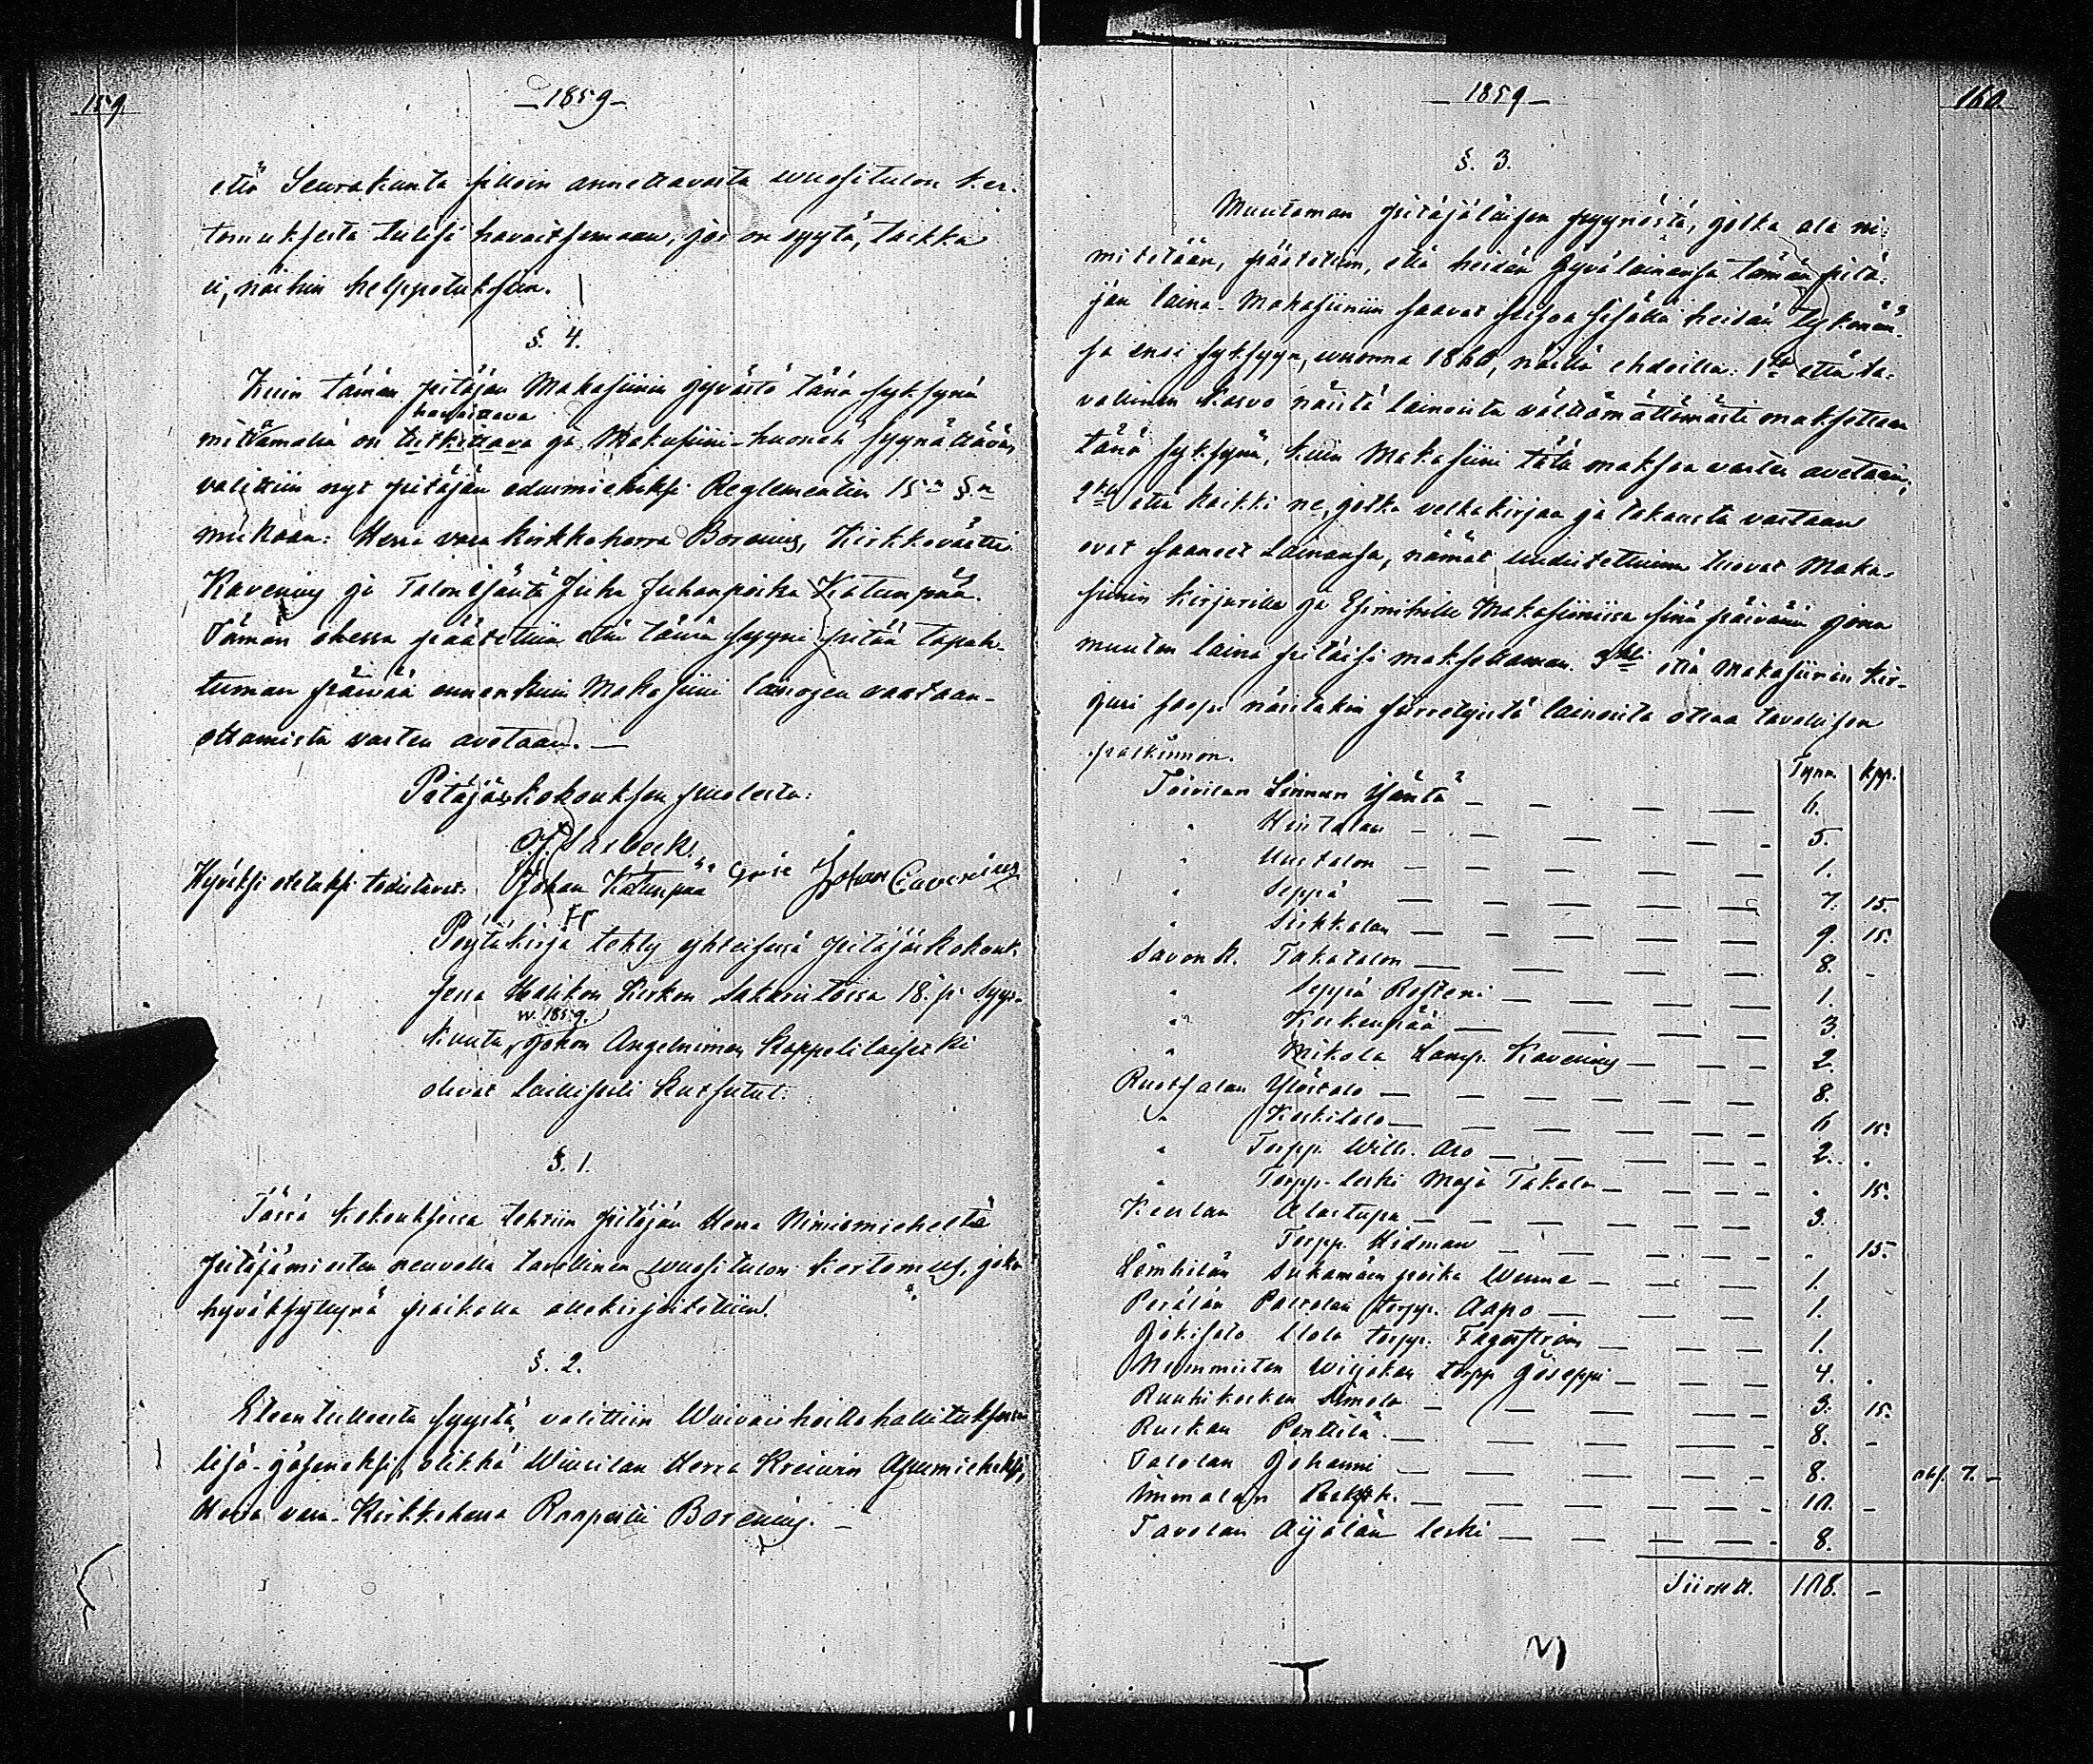 159
— 1859 —
että Seurakunta silloin annettavasta wuositulon ker-
tomuksesta tulisi havaitsemaan, jos on syytä, taikka
ei, näihin helppotuksiin.
§. 4.
Kuin tämän pitäjän Makasiinin jyvästö tänä syksynä
havaittava
mittämällä on tutkittava ja Makasiini-huonet syynättävä,
valittiin nyt pitäjän edusmieheksi Reglementin 15n §n
mukaan: Herra vara kirkkoherra Borenius, Kirkkoväärti
Kavenius ja Talon Isäntä Juha Juhanpoika Katunpää.
Tämän ohessa päätettiin että tämä syyni pitää tapah-
tuman päivää ennenkuin Makasiini lainojen vastaan-
ottamista varten avetaan. —
Pitäjäskokouksen puolesta:
Hyväksi otetuksi todistavat: Johan Katunpää Johan Cavenius
Pöytäkirja tehty yhteisessä pitäjäskokouk-
sessa Halikon Kirkon Sakaristossa 18. p. Syys-
w. 1859.
kuuta, johon Angelniemen Kappelilaisetki
olivat laillisesti kutsutut.
§. 1.
Tässä kokouksessa tehtiin pitäjän Herra Nimismieheltä
pitäjämiesten neuvolla tavallinen wuositulon kertomus, joka
hyväksyttynä paikalla allekirjoitettiin.
§. 2.
Eteen tulleesta syystä, valittiin Waivaishoitohallituksessa
lisä-jäseneksi, olikkä Wiurilan Herra Kreiwin Apumieheksi,
Herra vara-Kirkkoherra Kaapriel Borenius. —
— 1859 —
160
§. 3.
Muutaman pitäjäläisen pyynnöstä, jotka ala ni-
mitetään, päätettiin, että heidän jyvälainansa tämän pitä-
jän laina-Makasiiniin saavat seisoa sisällä heidän tykönän-
sä ensi syksyyn, wuonna 1860, näillä ehdoilla: 1ksi että ta-
vallinen kasvo näistä lainoista välttämättömästi maksetaan
tänä syksynä, kuin Makasiini tätä maksoa varten avetaan;
2ksi että kaikki ne, jotka velkakirjaa ja takausta vastaan
ovat saaneet lainansa, nämät uudistettuina tuovat Maka-
siinin kirjurille ja Esimiehille Makasiinissa sinä päivänä jona
muuten laina pitäisi maksettaman. 3ksi että Makasiinin kir-
juri saapi näistäkin siirretyistä lainoista ottaa tavallisen
palkinnon.
Tynn. kpp.
Toivilan Linnan Isäntä — 6.
" Hintalan — 5.
" Uustalon — 1.
" Seppä — 7. 15.
" Sirkkalan — 9. 15.
Savon k. Takatalon — 8. -
" Seppä Rosteni — 1.
" Koskenpää — 3.
" Mikola Lamp. Kavenius — 2.
Ruotsalan Ylöstalo — 8.
" Keskitalo — 6 15.
" Torpp. Wilh. Aro — 2. .
" Torpp. leski Maja Takala — . 15.
Keulan Alastupa — 3.
Torpp. Hidman — . 15.
Lemhilän Sukamäen poika Wenne — 1.
Perälän Paltalan torpp. Aapo — 1.
Jokisalo Ulola torpp. Fagerström — 1.
Nummisten Wiljakan torpp Joseppi — 4. .
Ruuhikosken Simola — 3. 15.
Ruskan Penttilä — 8. -
Talolan Johanni — 8.
Immalan — 10. -
Tavolan Äijälän leski — 8.
Siirrett. 108. -